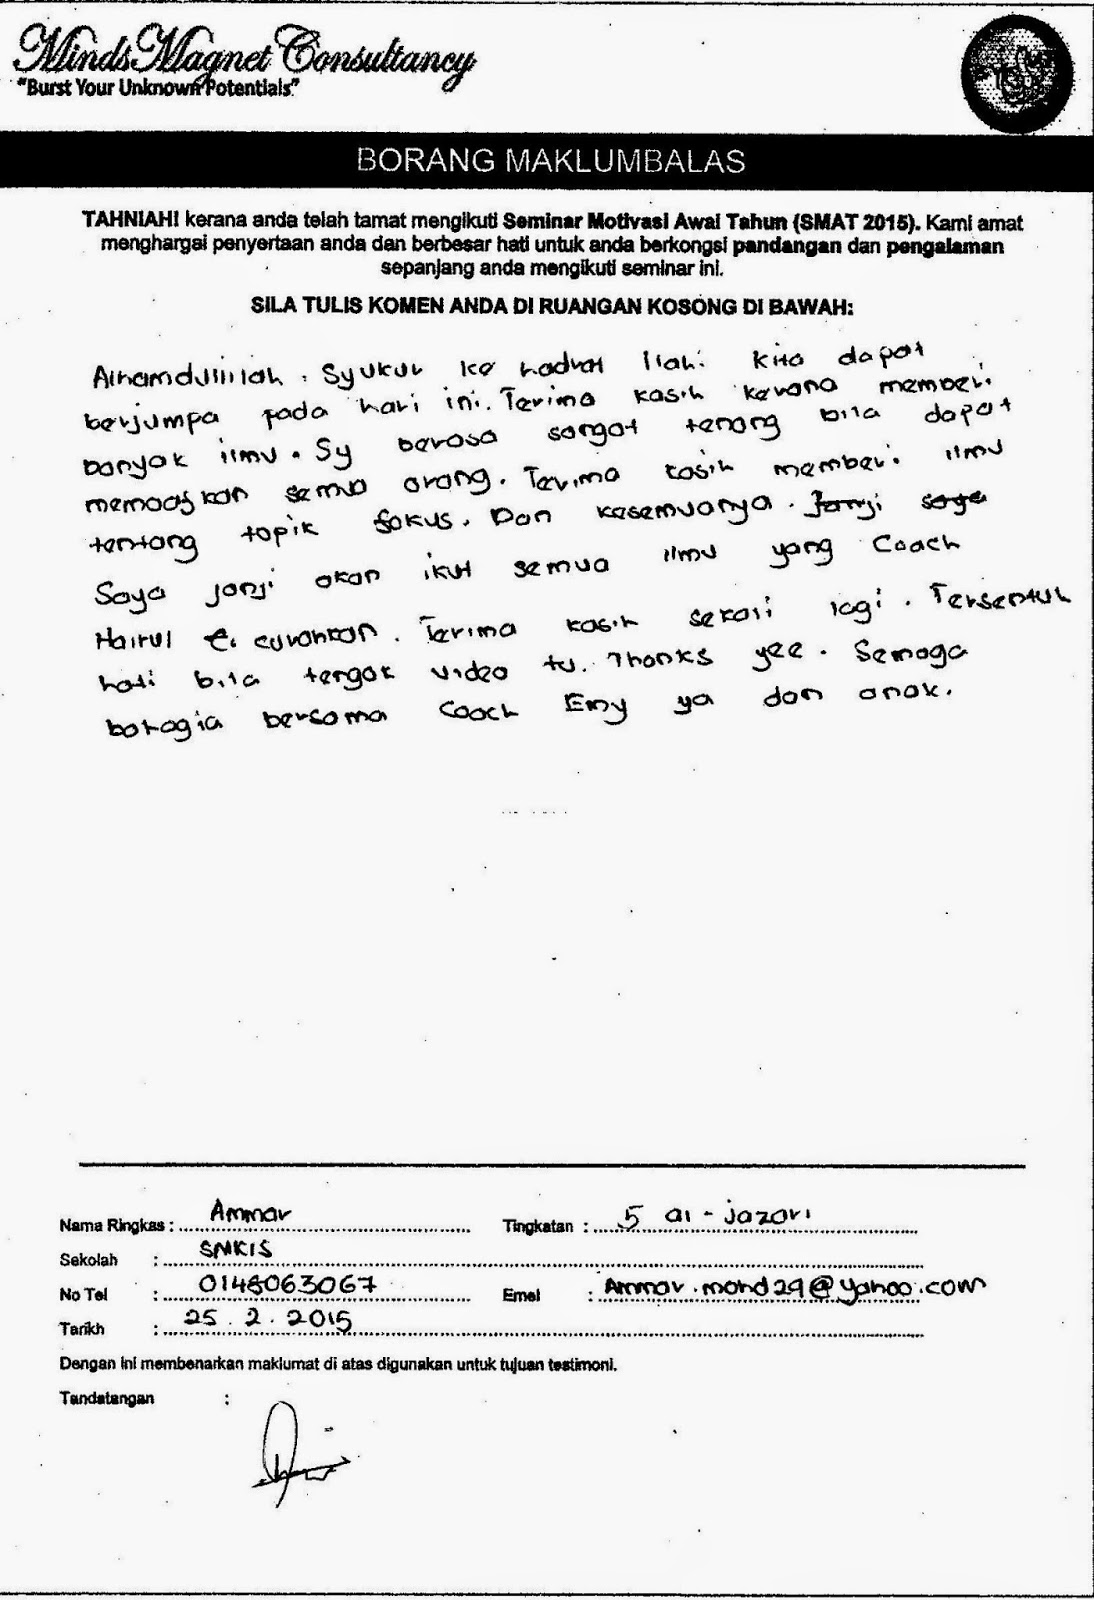 Minds Magnet Consultancy
"Burst Your Unknown Potentials"
BORANG MAKLUMBALAS
TAHNIAH! kerana anda telah tamat mengikuti Seminar Motivasi Awal Tahun (SMAT 2015). Kami amat
menghargai penyertaan anda dan berbesar hati untuk anda berkongsi pandangan dan pengalaman
sepanjang anda mengikuti seminar ini.
SILA TULIS KOMEN ANDA DI RUANGAN KOSONG DI BAWAH:
Alhamdulillah. Syukur ke hadrat Ilahi kita dapat
berjumpa pada hari ini. Terima kasih kerana memberi
banyak ilmu. Sy berasa sangat tenang bila dapat
memaafkan semua orang. Terima kasih memberi ilmu
tentang topik fokus. Dan kesemuanya. Janji saya
Saya janji akan ikut semua ilmu yang Coach
Hairul curahkan. Terima kasih sekali lagi. Tersentuh
hati bila tengok video tu. Thanks yee. Semoga
bahagia bersama Coach Emy ya dan anak.
Nama Ringkas : Ammar Tingkatan : 5 al-jazari
Sekolah : SMKIS
No Tel : 0148063067 Emel : Ammar.mohd29@yahoo.com
Tarikh : 25.2.2015
Dengan ini membenarkan maklumat di atas digunakan untuk tujuan testimoni.
Tandatangan :